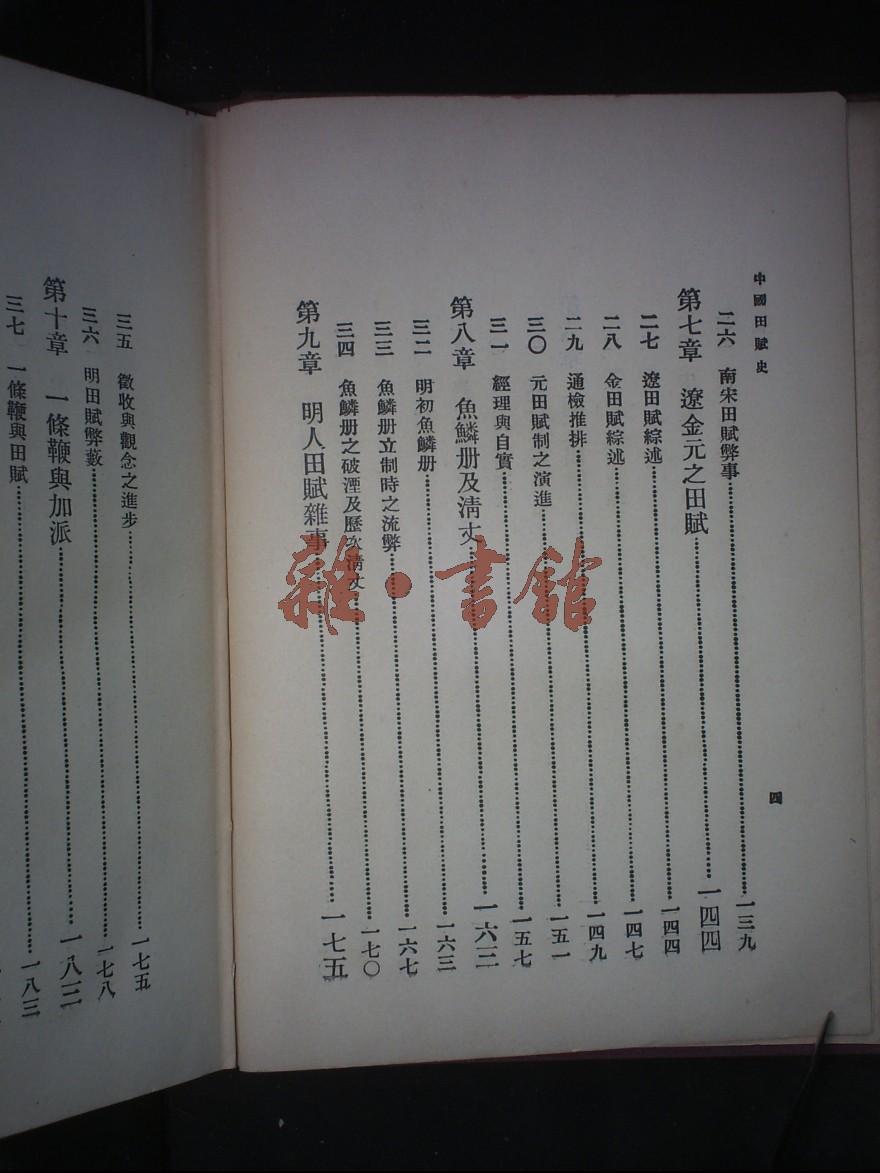 中國田賦史
四
二六　南宋田賦弊事……一三九
第七章　遼金元之田賦……一四四
二七　遼田賦綜述……一四四
二八　金田賦綜述……一四七
二九　通檢推排……一四九
三〇　元田賦制之演進……一五一
三一　經理與自實……一五七
第八章　魚鱗册及清丈……一六三
三二　明初魚鱗册……一六三
三三　魚鱗册立制時之流弊……一六七
三四　魚鱗册之破湮及歷次清丈……一七〇
第九章　明人田賦雜事……一七五
三五　徵收與觀念之進步……一七五
三六　明田賦弊藪……一七八
第十章　一條鞭與加派……一八三
三七　一條鞭與田賦……一八三
雜·書館